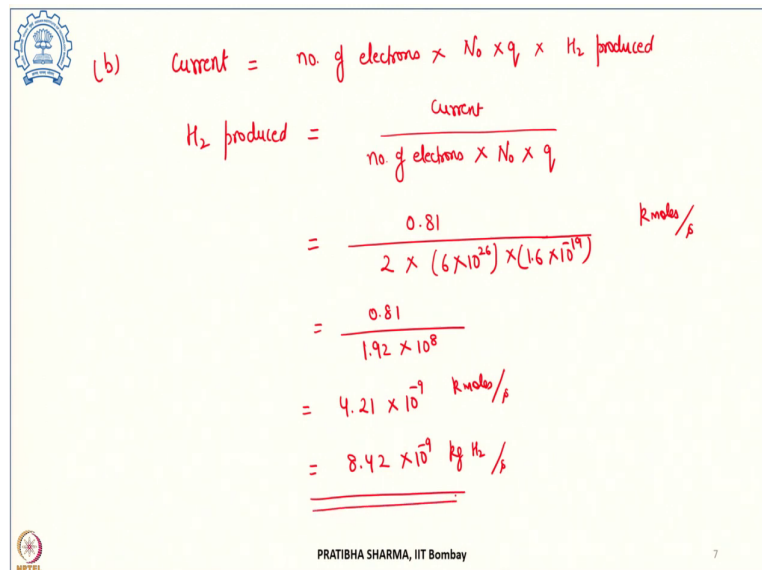 (b) Current = no. of electrons × N₀ × q × H₂ produced
H₂ produced = Current / no. of electrons × N₀ × q
= 0.81 / 2 × (6×10²⁶) × (1.6×10⁻¹⁹) kmoles/s
= 0.81 / 1.92 × 10⁸
= 4.21 × 10⁻⁹ kmoles/s
= 8.42 × 10⁻⁹ kg H₂/s
NPTEL
PRATIBHA SHARMA, IIT Bombay
7